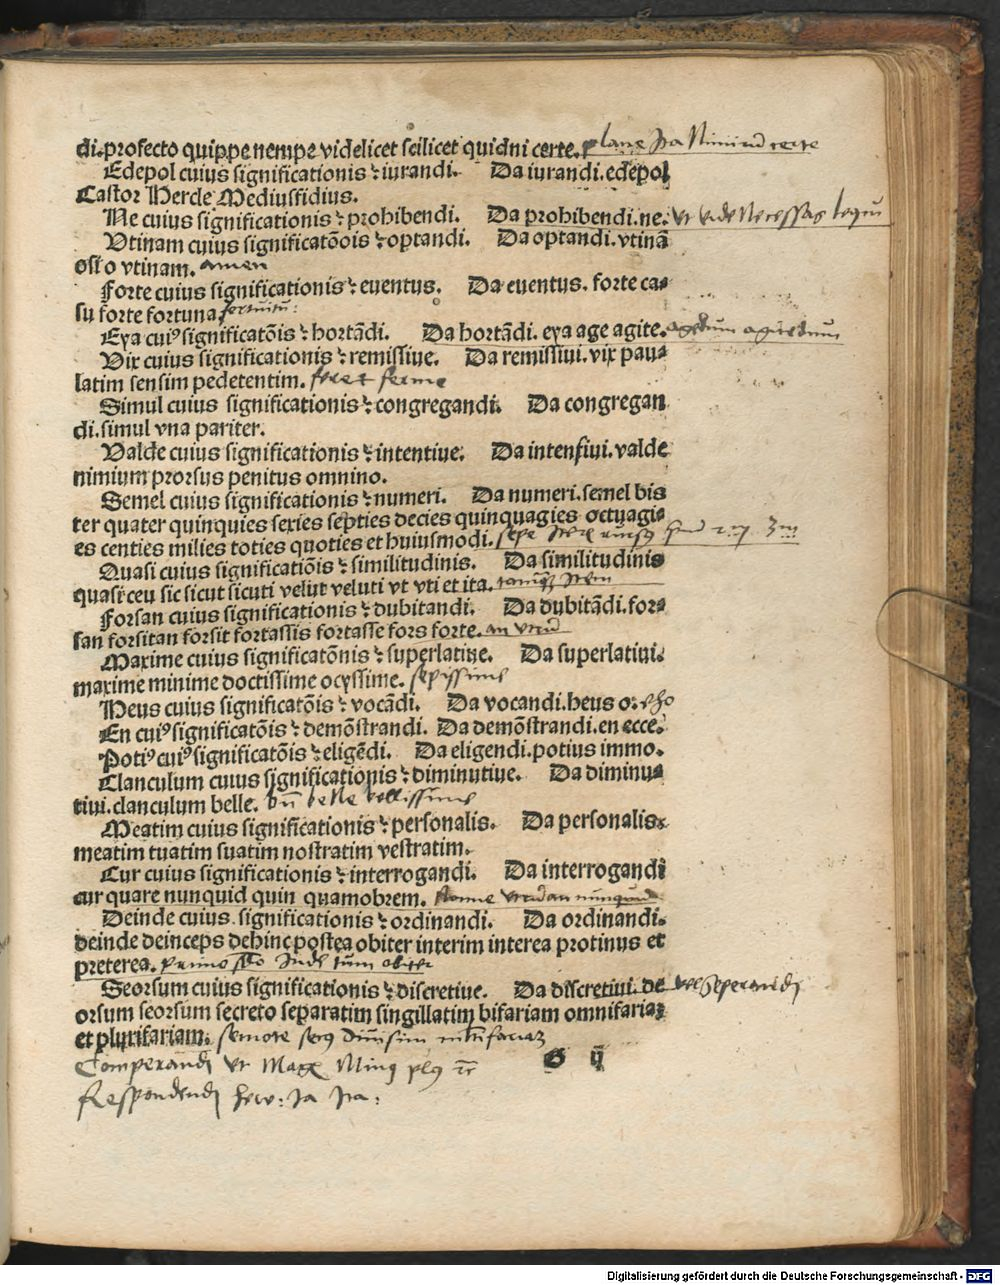 di.profecto quippe nempe videlicet scilicet quidni certe. plane Ita Nimirū certe
Edepol cuius significationis ⁊ iurandi. Da iurandi.edepol
Castor Hercle Mediusfidius.
Ne cuius significationis ⁊ prohibendi. Da prohibendi.ne. vt
Vtinam cuius significatōois ⁊ optandi. Da optandi.vtinā
osi o vtinam. amen
Forte cuius significationis ⁊ euentus. Da euentus. forte ca⸗
su forte fortuna fortuitu:
Eya cuiꝰ significatōis ⁊ hortādi. Da hortādi. eya age agite. agedum agitedum
Vix cuius significationis ⁊ remissiue. Da remissiui. vix pau⸗
latim sensim pedetentim. fere ferme
Simul cuius significationis ⁊ congregandi. Da congregan
di.simul vna pariter.
Valde cuius significationis ⁊ intentiue. Da intensiui.valde
nimium prorsus penitus omnino.
Semel cuius significationis ⁊ numeri. Da numeri.semel bis
ter quater quinquies sexies septies decies quinquagies octuagi⸗
es centies milies toties quoties et huiusmodi. sepe
Quasi cuius significatiōis ⁊ similitudinis. Da similitudinis
quasi ceu sic sicut sicuti velut veluti vt vti et ita. tamqꝫ Item
Forsan cuius significationis ⁊ dubitandi. Da dubitādi.for⸗
san forsitan forsit fortassis fortasse fors forte. an
Maxime cuius significatōnis ⁊ superlatiue. Da superlatiui.
maxime minime doctissime ocyssime. sepissime
Heus cuius significatōis ⁊ vocādi. Da vocandi.heus o. eho
En cuiꝰ significatōis ⁊ demōstrandi. Da demōstrandi.en ecce.
Potiꝰ cuiꝰ significatōis ⁊ eligēdi. Da eligendi.potius immo.
Clanculum cuius significationis ⁊ diminutiue. Da diminu⸗
tiui.clanculum belle. belle bellissime
Meatim cuius significationis ⁊ personalis. Da personalis.
meatim tuatim suatim nostratim vestratim.
Cur cuius significationis ⁊ interrogandi. Da interrogandi
cur quare nunquid quin quamobrem. Nonne
Deinde cuius significationis ⁊ ordinandi. Da ordinandi.
deinde deinceps dehinc postea obiter interim interea protinus et
preterea. primo scdo Inde tum obiter
Seorsum cuius significationis ⁊ discretiue. Da discretiui.de vel seperandi
orsum seorsum secreto separatim singillatim bifariam omnifariaꝫ
et plurifariam. semote
Comperandi vt Magꝭ Minꝰ plꝰ
Respondendi heu: Ia Ita:
G ij
Digitalisierung gefördert durch die Deutsche Forschungsgemeinschaft - DFG